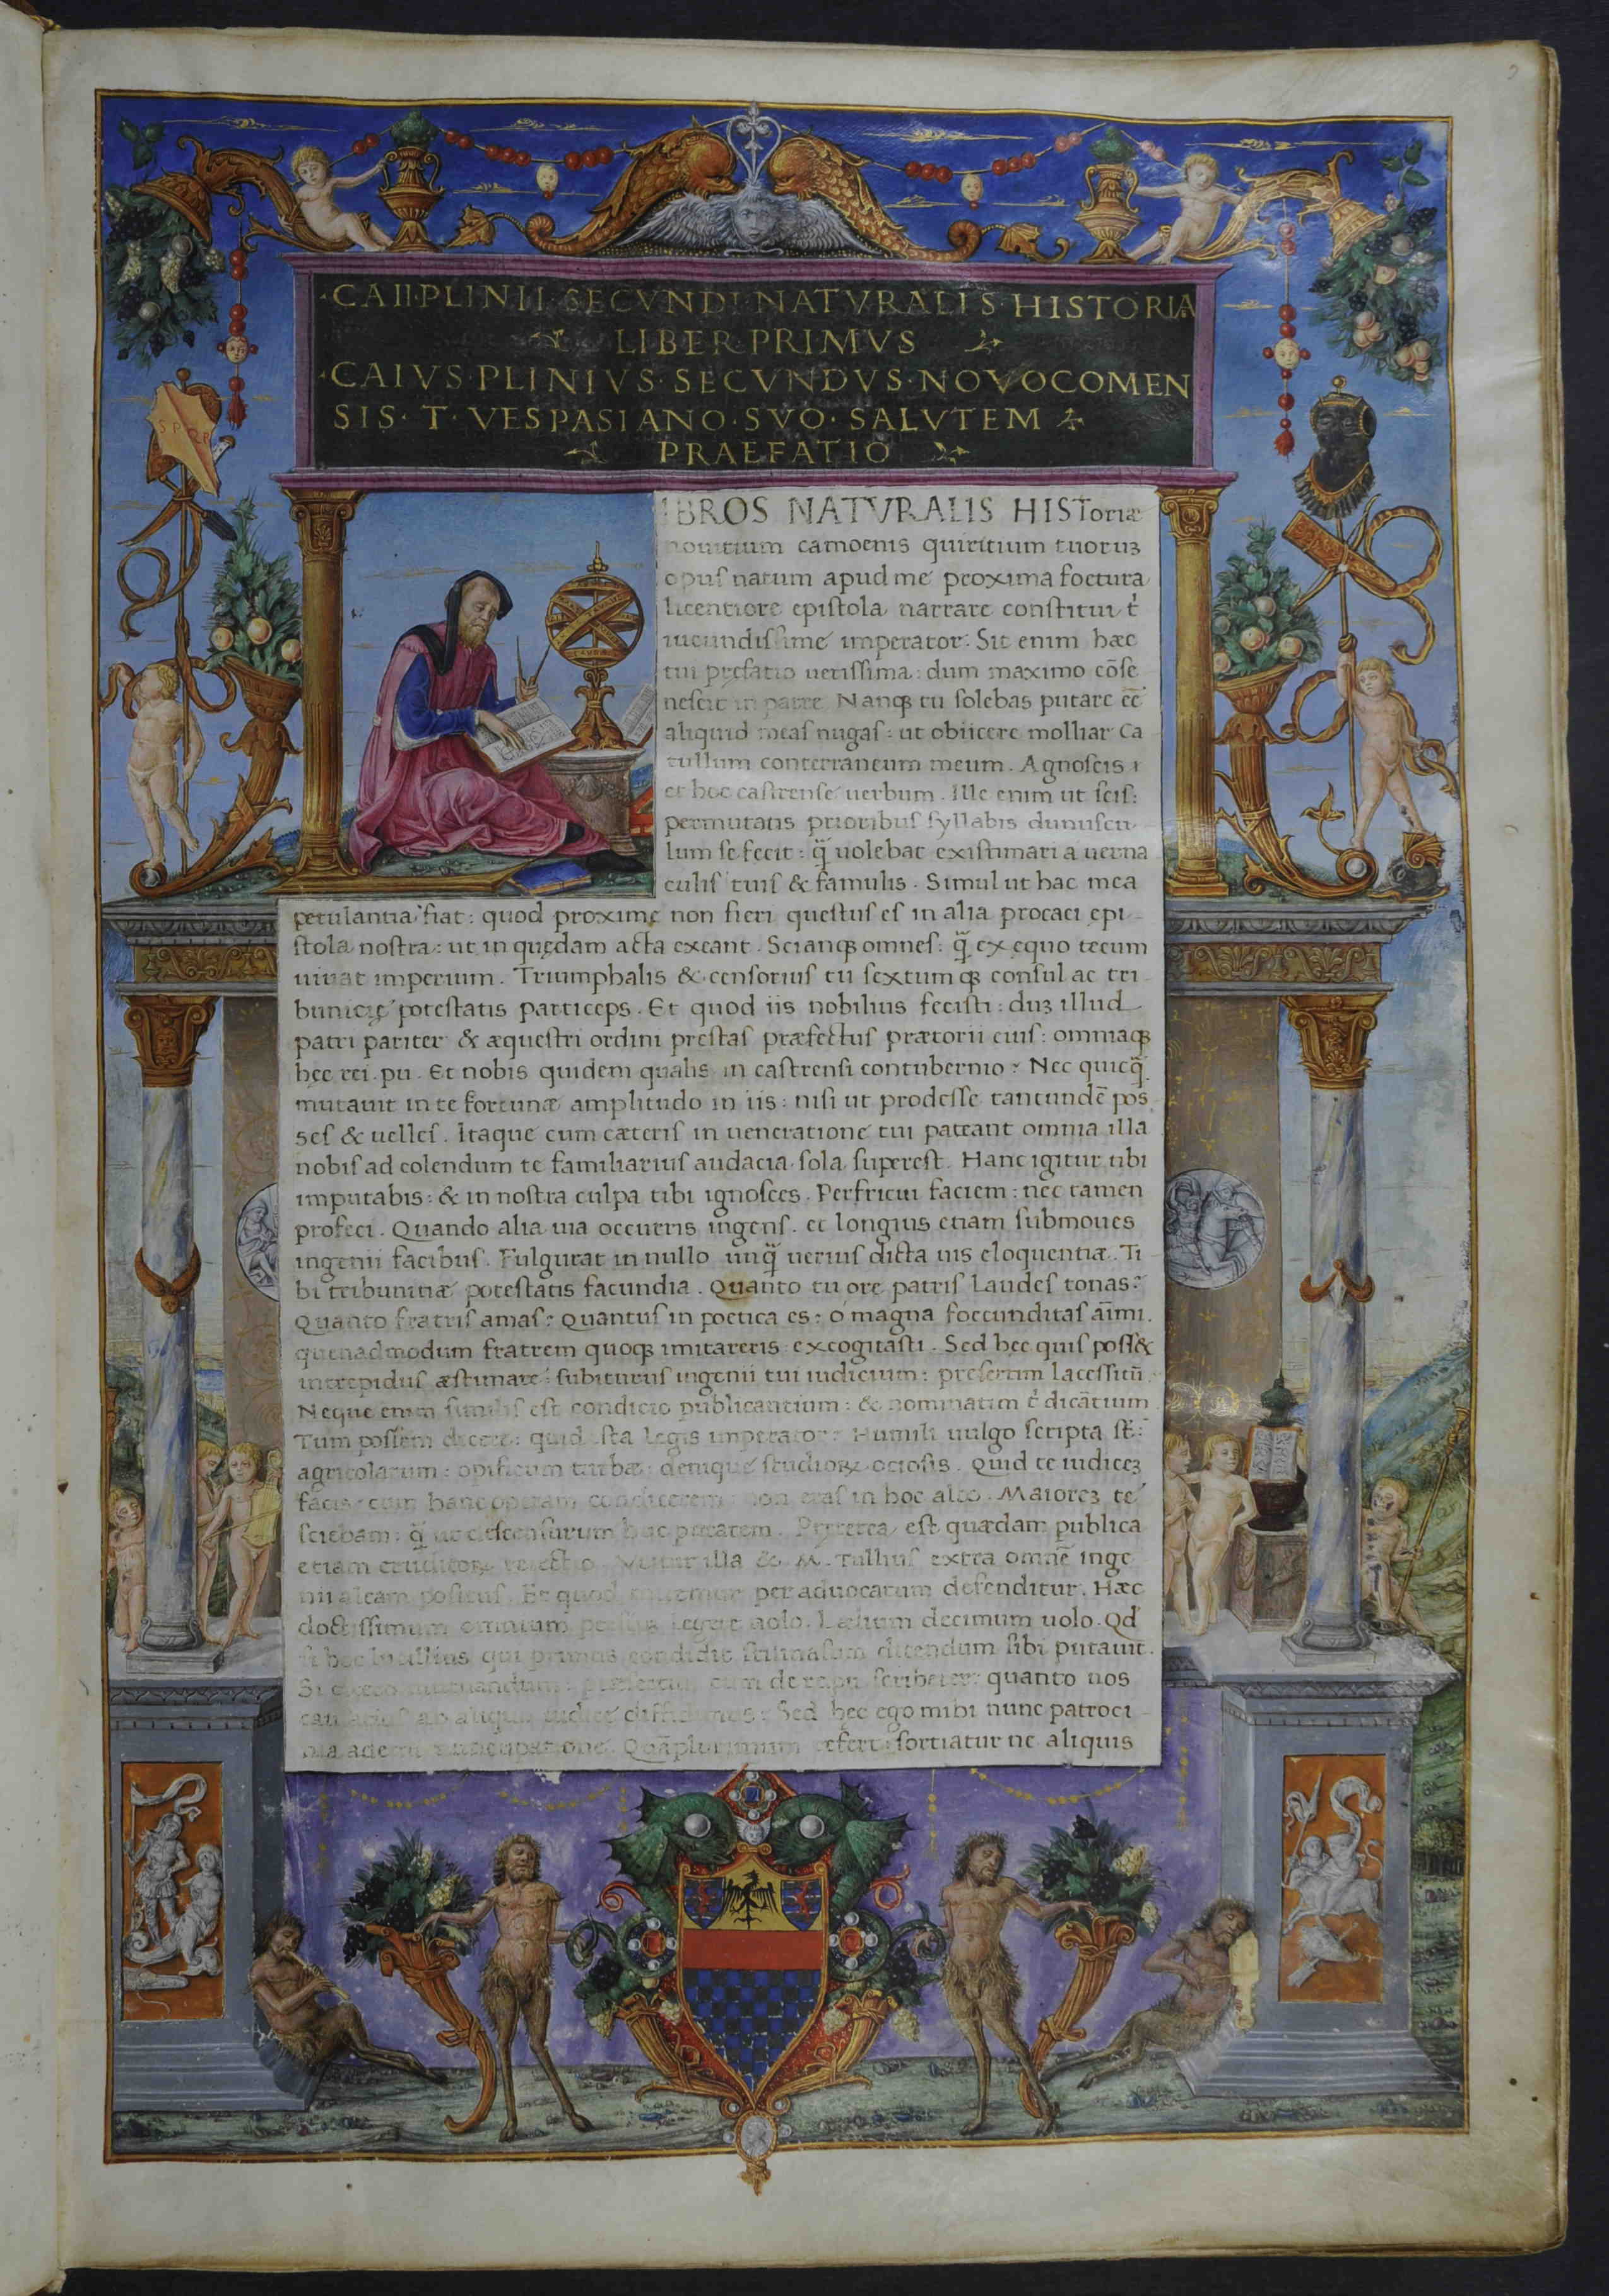 ·CAII·PLINII·SECVNDI·NATVRALIS·HISTORIA
LIBER·PRIMVS
·CAIVS·PLINIVS·SECVNDVS·NOVOCOMEN
SIS·T·VESPASIANO·SVO·SALVTEM
PRAEFATIO
SPQR
IBROS NATVRALIS HISToriæ
nouitium camoenis quiritium tuoruʒ
opuſ natum apud me proxima foetura
licentiore epiſtola narrare conſtitui t̓
iucundiſſime imperator. Sit enim hæc
tui pręfatio ueriſſima: dum maximo cōſe
neſcit in patre. Nanqʒ tu ſolebas putare eē
aliquid meaſ nugaſ: ut obiicere molliar Ca
tullum conterraneum meum. Agnoſcis ⁊
et hoc caſtrenſe uerbum. Ille enim ut ſciſ:
permutatis prioribuſ ſyllabis duriuſcu
lum ſe fecit: q̄ uolebat exiſtimari a uerna
culiſ tuiſ & famulis. Simul ut hac mea
petulantia fiat: quod proximę non fieri queſtuſ eſ in alia procaci epi
ſtola noſtra: ut in quędam acta exeant. Scianqʒ omneſ: q̄ ex ęquo tecum
uiuat imperium. Triumphalis & cenſoriuſ tu ſextumqʒ conſul ac tri
bunicię poteſtatis particeps. Et quod iis nobilius feciſti: duʒ illud
patri pariter & æqueſtri ordini preſtaſ præfectuſ prætorii eiuſ: omniaqʒ
hec rei. pu. Et nobis quidem qualis in caſtrenſi contubernio? Nec quicq̄
mutauit in te fortunæ amplitudo in iis: niſi ut prodeſſe tantundē poſ
ſeſ & uelleſ. Itaque cum cæteriſ in ueneratione tui pateant omnia illa
nobiſ ad colendum te familiariuſ audacia ſola ſupereſt. Hanc igitur tibi
imputabis: & in noſtra culpa tibi ignoſces. Perfricui faciem: nec tamen
profeci. Quando alia uia occurris ingenſ. et longius etiam ſubmoues
ingenii facibuſ. Fulgurat in nullo unq̄ ueriuſ dicta uis eloquentiæ. Ti
bi tribunitiæ poteſtatis facundia. Quanto tu ore patriſ laudeſ tonas?
Quanto fratriſ amaſ? Quantuſ in poetica es? o magna foecunditaſ aīmi.
quenadmodum fratrem quoqʒ imitareris excogitaſti. Sed hec quiſ poſſ&
intrepiduſ æſtimare? ſubituruſ ingenii tui iudicium: preſertim laceſſitū.
Neque enim ſimiliſ eſt condicio publicantium: & nominatim t̓ dicātium
Tum poſſem dicere: quid iſta legis imperator? Humili uulgo ſcripta ſt̄:
agricolarum: opificum turbæ: denique ſtudioꝝ ocioſis. Quid te iudiceʒ
facis? cum hanc operam condicerem: non eraſ in hoc albo. Maioreʒ te
ſciebam: q̄ ut deſcenſurum huc putarem. Pręterea eſt quædam publica
etiam eruditoꝝ reiectio. Vtitur illa & M. Tulliuſ extra omnē inge
nii aleam poſituſ. Et quod miremur per aduocatum defenditur. Hæc
doctiſſimum omnium perſium legere nolo. Lælium decimum uolo. Qd̓
ſi hoc lucillius qui primus condidit ſtili naſum dicendum ſibi putauit.
Si cicero mutuandum: præſertim cum de re. pu. ſcriberet: quanto nos
cautiuſ ab aliquo iudice diffidimus? Sed hęc ego mihi nunc patroci
nia ademi nuncupatione. Quāplurimum refert: ſortiatur ne aliquis